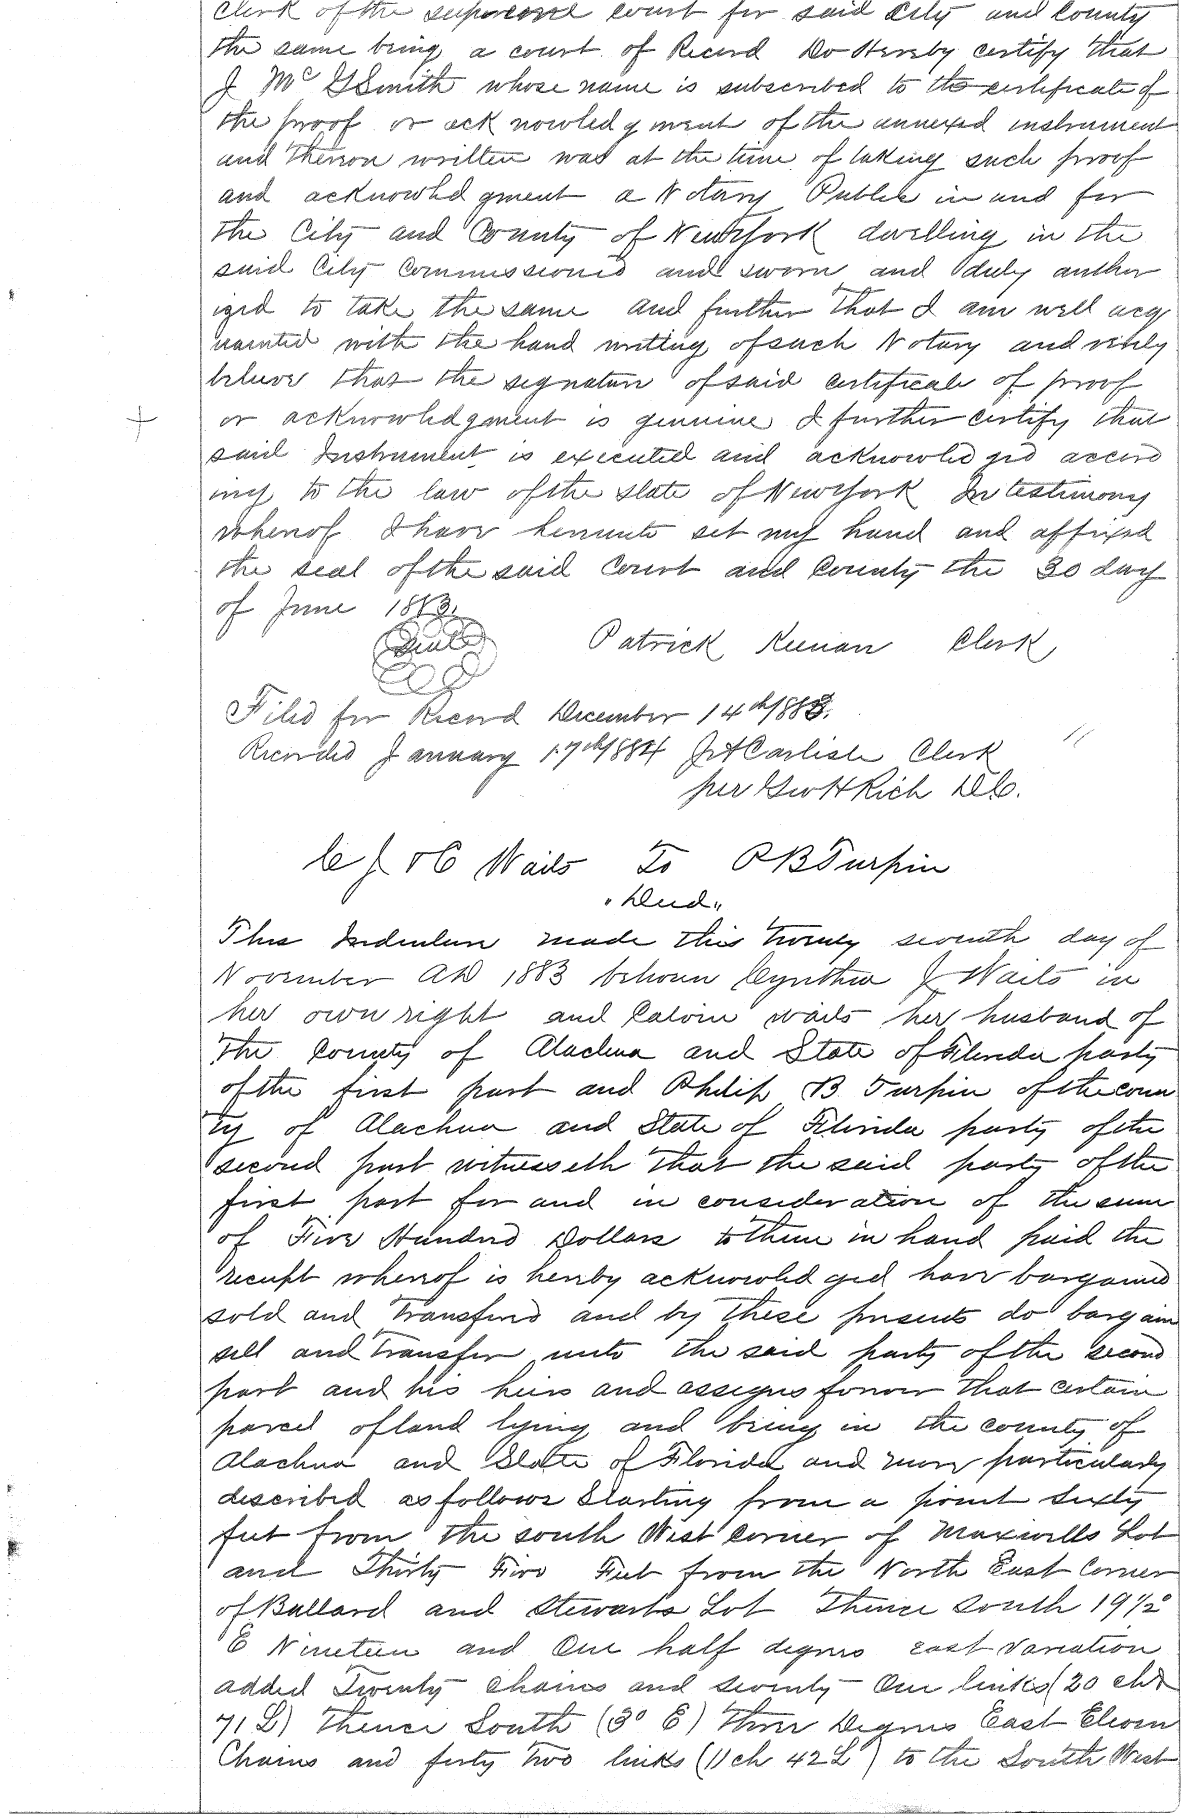 Clerk of the supreme court for said City and County
the same being a court of Record Do Hereby certify that
J McGSmith whose name is subscribed to the certificate of
the proof or acknowledgment of the annexed instrument
and thereon written was at the time of taking such proof
and acknowledgment a Notary Public in and for
the City and County of NewYork dwelling in the
said City Commissioned and sworn and duly author
ized to take the same and further that I am well acq
uainted with the hand writing of such Notary and verily
believe that the signature of said certificate of proof
or acknowledgment is genuine I further certify that
said Instrument is executed and acknowledged accord
ing to the law of the state of NewYork In testimony
whereof I have hereunto set my hand and affixed
the seal of the said Court and County the 30 day
of June 1883.
Seal Patrick Keenan Clerk
Filed for Record December 14th 1883.
Recorded January 17th 1884 J A Carlisle Clerk
per Geo H Rich D.C.
C J & C Waits To P B Turpin
"Deed"
This Indenture made this twenty seventh day of
November AD 1883 between Cynthia J Waits in
her own right and Calvin waits her husband of
the County of Alachua and State of Florida party
of the first part and Philip B Turpin of the coun
ty of Alachua and State of Florida party of the
second part witnesseth that the said party of the
first part for and in consideration of the sum
of Five Hundred Dollars to them in hand paid the
receipt whereof is hereby acknowledged have bargained
sold and transferd and by these presents do bargain
sell and transfer unto the said party of the second
part and his heirs and assigns forever that certain
parcel of land lying and being in the county of
Alachua and State of Florida and more particularly
described as follows Starting from a point Sixty
feet from the south West Corner of Maxwells Lot
and Thirty Five Feet from the North East Corner
of Ballard and Stewarts Lot Thence South 19½°
E Nineteen and One half degrees east variation
added Twenty chains and seventy One links (20 chs
71 L) Thence South (3° E) three Degrees East Eleven
Chains and forty two links (11 ch 42 L) to the South West